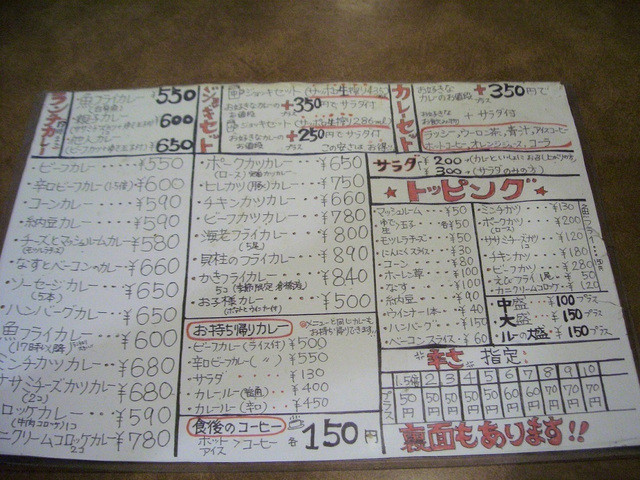 ランチカレー
魚フライカレー 550
親子カレー 600
650
ジョッキセット
ジョッキセット(サッポロ生搾り
お好きなカレーのお値段 プラス +350円でサラダ付
お好きなカレーのお値段 プラス +250円でサラダ付
カレーセット
お好きなカレーのお値段 プラス +350円で
+ サラダ付
ラッシー,ウーロン茶,青汁,アイスコーヒー
ホットコーヒー,オレンジジュース,コーラ
サラダ ¥200
¥300 (サラダのみの方)
ビーフカレー ¥550
辛口ビーフカレー ¥600
コーンカレー ¥590
納豆カレー ¥590
チーズとマッシュルームカレー ¥580
なすとベーコンのカレー ¥660
ソーセージカレー ¥650
(5本)
ハンバーグカレー ¥650
魚フライカレー ¥600
ミンチカツカレー ¥680
ササミチーズカツカレー ¥680
(2コ)
コロッケカレー ¥590
(牛肉コロッケ)1コ
カニクリームコロッケカレー ¥780
2コ
ポークカツカレー ¥650
(ロース)
ヒレカツカレー ¥750
チキンカツカレー ¥660
ビーフカツカレー ¥780
海老フライカレー ¥800
(5尾)
貝柱のフライカレー ¥890
かきフライカレー ¥840
5コ(季節限定
お子様カレー ¥500
お持ち帰りカレー
メニューと同じカレーをお持ち帰りできます!!
ビーフカレー(ライス付) ¥500
辛口ビーフカレー(〃) ¥550
サラダ ¥130
カレールー(普通) ¥400
カレールー(辛口) ¥450
食後のコーヒー
ホット
アイス >コーヒー 各150円
★トッピング★
マッシュルーム ¥50
ゆで玉子 生 各¥50
モッツァレラチーズ ¥50
にんにくスライス ¥30
コーン ¥80
ホーレン草 ¥100
なす ¥100
納豆 ¥90
ウインナー1本 ¥40
ハンバーグ ¥150
ベーコンスライス ¥60
ミンチカツ ¥130
ポークカツ ¥200
(ロース)
ササミチーズカツ ¥120
チキンカツ ¥180
ビーフカツ ¥280
えびフライ1尾 ¥250
カニクリームコロッケ ¥120
魚フライ
中盛 ¥100プラス
大盛 ¥150プラス
ルー大盛 ¥150プラス
辛さ指定
1.5倍 2 3 4 5 6 7 8 9 10
プラス 50円 50円 50円 50円 50円 60円 70円 70円 70円 70円
裏面もあります!!